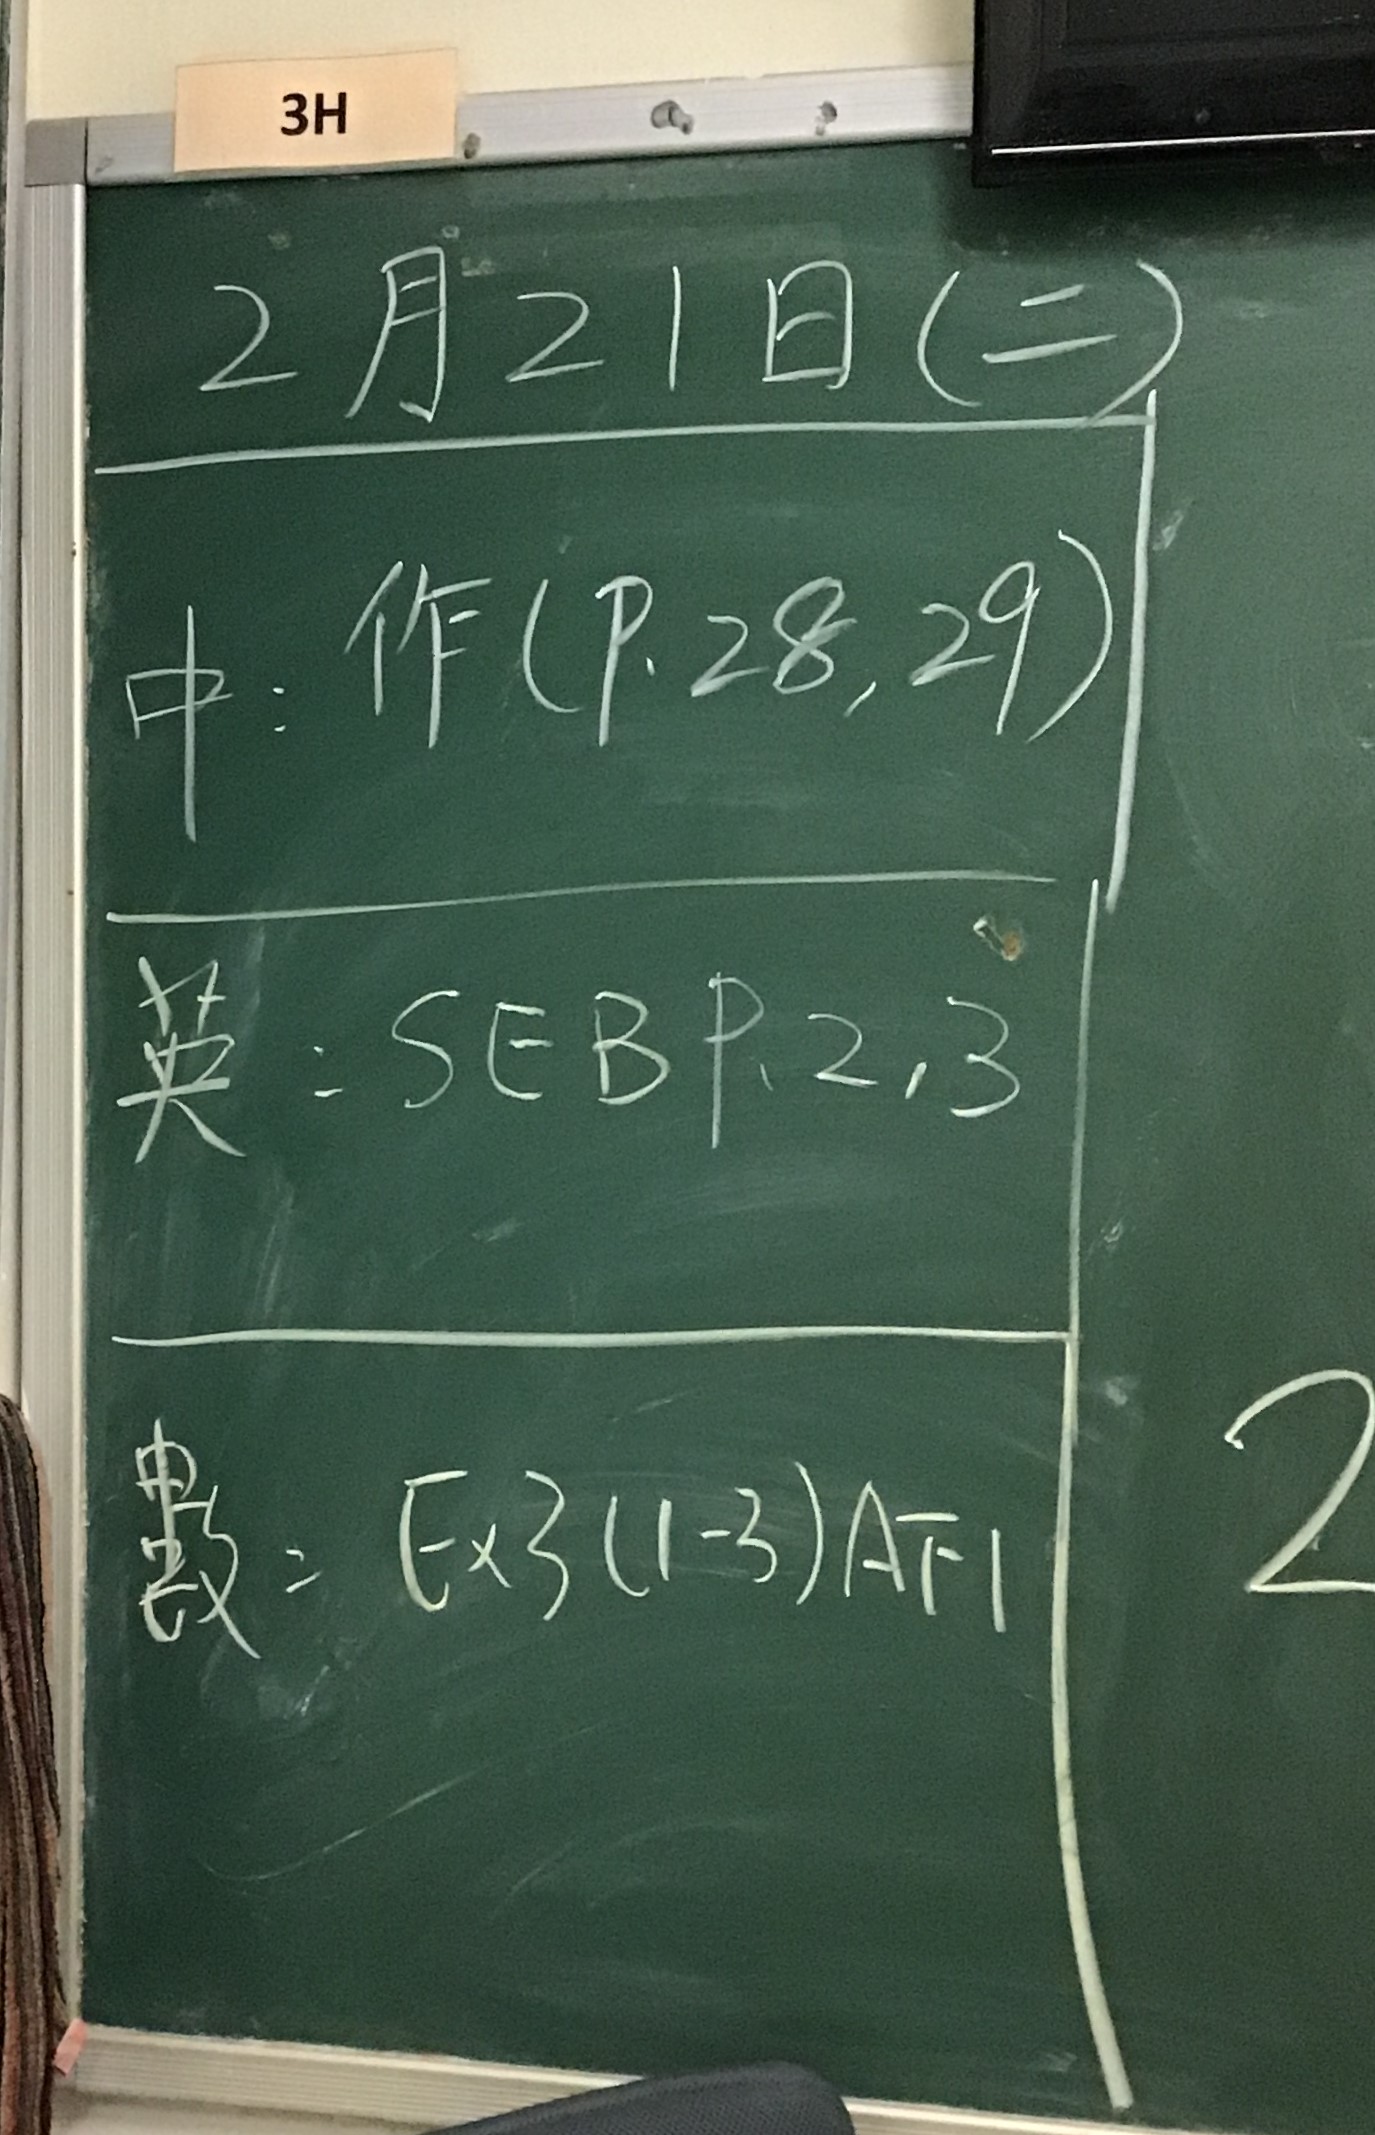 3H
2月21日(二)
中: 作(P.28,29)
英: SEB P.2,3
數: Ex3(1-3)AF1
2